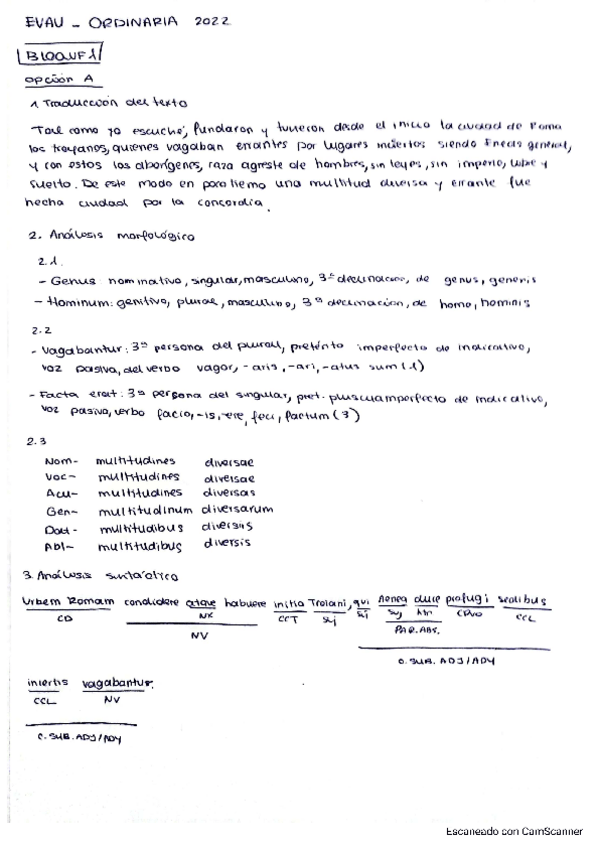 EVAU - ORDINARIA 2022
BLOQUE 1
opción A
1. Traducción del texto
Tal como yo escuché, fundaron y tuvieron desde el inicio la ciudad de Roma
los troyanos, quienes vagaban errantes por lugares inciertos siendo Eneas general,
y con estos los aborígenes, raza agreste de hombres, sin leyes, sin imperio, libre y
suelto. De este modo en una multitud diversa y errante fue
hecha ciudad por la concordia.
2. Análisis morfológico
2.1.
- Genus: nominativo, singular, masculino, 3ª declinación, de genus, generis
- Hominum: genitivo, plural, masculino, 3ª declinación, de homo, hominis
2.2
- Vagabantur: 3ª persona del plural, pretérito imperfecto de indicativo,
voz pasiva, del verbo vagor, -aris, -ari, -atus sum (1)
- Facta erat: 3ª persona del singular, pret. pluscuamperfecto de indicativo,
voz pasiva, verbo facio, -is, -ere, feci, factum (3)
2.3
Nom- multitudines diversae
Voc- multitudines diversae
Acu- multitudines diversas
Gen- multitudinum diversarum
Dat- multitudibus diversis
Abl- multitudibus diversis
3. Análisis sintáctico
Urbem Romam condidere atque habuere initio Troiani, qui Aenea duce profugi sedibus
CD NX CCT Suj Suj Suj Atr CPvo CCL
NV PAR.ABS.
O. SUB. ADJ/ADV
incertis vagabantur.
CCL NV
O. SUB. ADJ/ADV
Escaneado con CamScanner